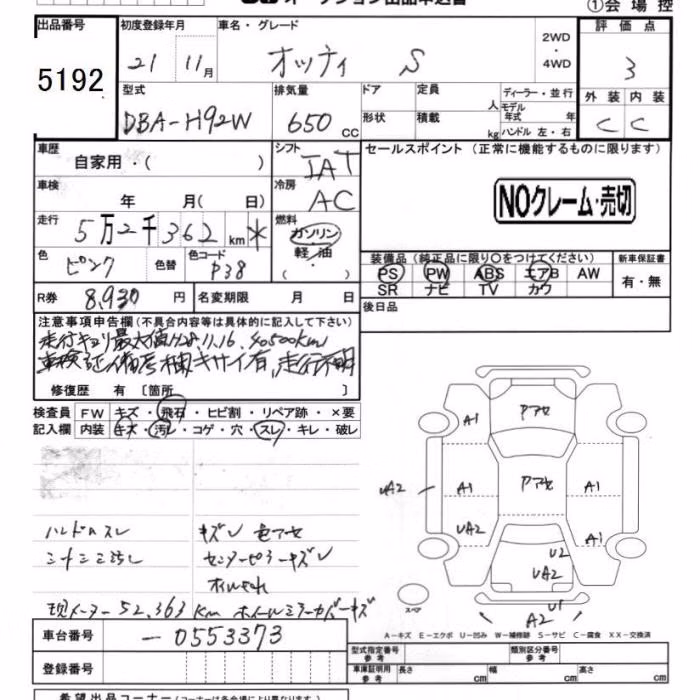 オークション出品申込書
①会場控
出品番号
5192
初度登録年月
21 11月
車名・グレード
オッティ S
2WD
・
4WD
評価点
3
外装 内装
C C
型式
DBA-H92W
排気量
650 CC
ドア
形状
定員
人
積載
kg
ディーラー・並行
モデル
年式 年
ハンドル 左・右
車歴
自家用・( )
シフト
IAT
車検
年 月( 日)
冷房
AC
走行
5万2千362km *
燃料
ガソリン
軽/油
・( )
色
ピンク
色替
色コード
P38
R券 8,930円
名変期限 月 日
セールスポイント(正常に機能するものに限ります)
NOクレーム・売切
装備品(純正品に限り○をつけてください)
新車保証書
PS PW ABS エアB AW
有・無
SR ナビ TV カワ
後日品
注意事項申告欄(不具合内容等は具体的に記入して下さい)
走行キョリ最大値H28.11.16. 90500km
車検証備考欄キサイ有、走行不明
修復歴 有 〔箇所 〕
検査員 FW キズ・飛石・ヒビ割・リペア跡・×要
記入欄 内装 キズ・汚レ・コゲ・穴・スレ・キレ・破レ
ハンドルスレ
シートシミ汚レ
キズレ 色アセ
センターピラーキズレ
オイルもれ
現メーター52,363km ホイールミラーカバーキズ
A1
Pアセ
UA2
A1
Pアセ
A1
UA2
A1
U2
UA2
U1
A2
スペア
A-キズ E-エクボ U-凹み W-補修跡 S-サビ C-腐食 XX-交換済
車台番号
-0553373
登録番号
型式指定番号
参考
類別区分番号
参考
車庫証明用
参考
長さ cm
幅 cm
高さ cm
希望出品コーナー(コーナーは各会場により異なります)